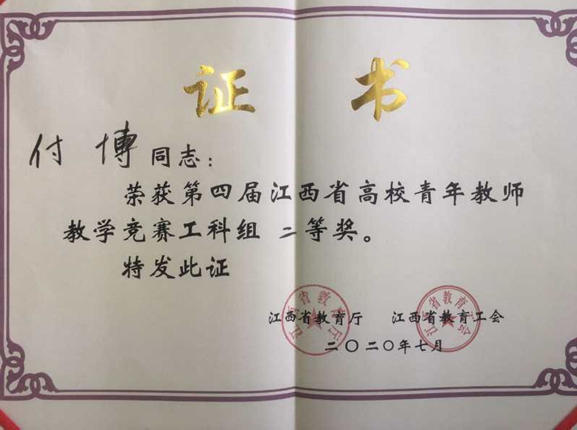 证 书
付 博 同志：
荣获第四届江西省高校青年教师
教学竞赛工科组 二等奖。
特发此证
江西省教育厅 江西省教育工会
二〇二〇年七月